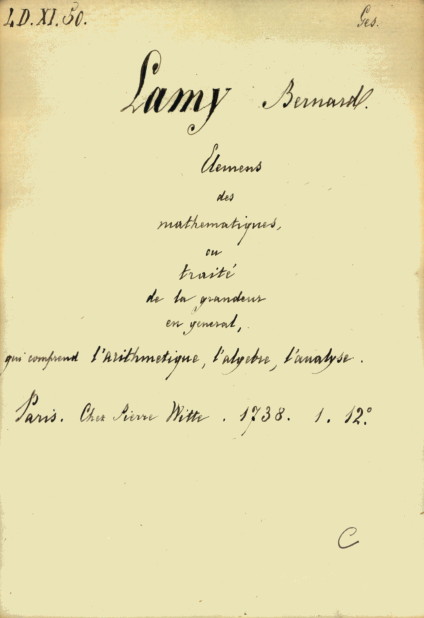 L.D.XI.50. Ges.
Lamy Bernard.
Elemens
des
mathematiques,
ou
traité
de la grandeur
en general,
qui comprend l'arithmetique, l'algebre, l'analyse.
Paris. Chez Pierre Witte. 1738. 1. 12°.
C